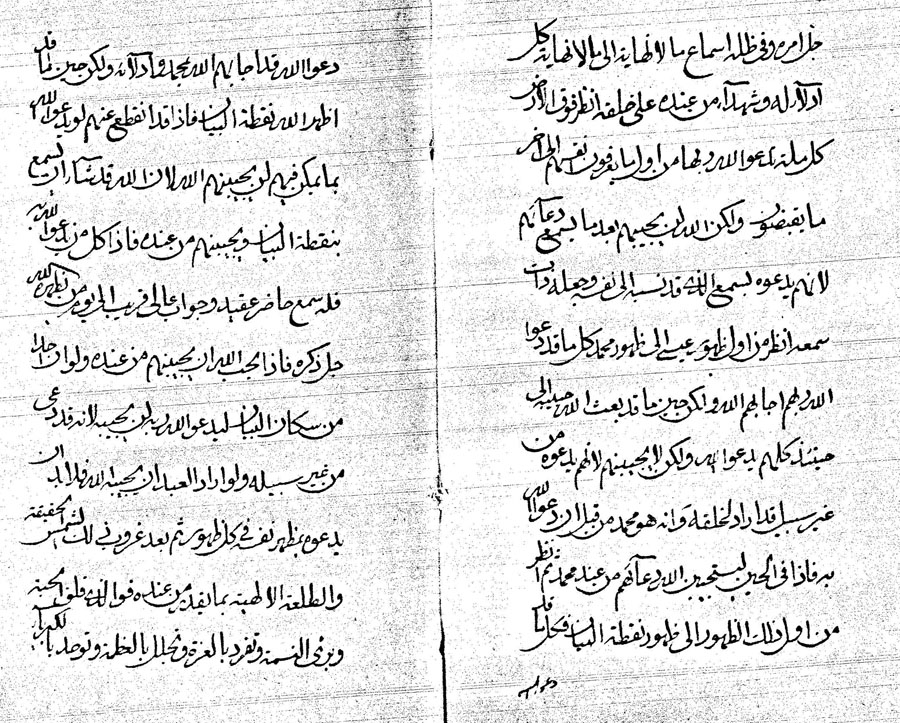 جل امره وفى ظله اسماع ما لا نهاية الى ما لا نهاية كل
ادلاء له وشهداء من عنده على خلقه انظر فوق الارض
كل ملة يدعوا الله ربها من اول ما يعرفون نفسهم الى اخر
ما يقبضون ولكن الله لن يجيبهم بعد ما يسمع دعائهم
لانهم يدعوه لسمع الذى قد نسبه الى نفسه وجعله ذات
سمعه انظر من اول ظهور عيسى الى ظهور محمد كل ما قد دعوا
الله ربهم اجابهم الله ولكن حين ما قد بعث الله حبيبه الى
حينئذ كلهم يدعوا الله ولكن لا يجيبنهم لانهم يدعوه من
غير سبيل قد اراد لخلقه وانه هو محمد من قبل ان دعوا الله
به فاذا فى الحين ليستجيبن الله دعائهم من عند محمد ثم انظر
من اول ذلك الظهور الى ظهور نقطة البيان فكلما قد
دعوا الله
دعوا الله قد اجابهم الله بمحمد وادلائه ولكن حين ما قد
اظهر الله نقطة البيان فاذا قد انقطع عنهم لو يدعوا الله
بما يمكن فيهم لن يجيبنهم الله لان الله قد شاء ان يسمع
بنقطة البيان ويجيبنهم من عنده فاذا كل من يدعوا الله ربه
فله سمع حاضر عقيد وجواب عالى قريب الى يوم من يظهره الله
جل ذكره فاذا يحب الله ان يجيبنهم من عنده ولو ان احدا
من سكان البيان ليدعوا الله ربه لن يجيبه لانه قد دعى
من غير سبيله ولو اراد العبد ان يجيبه الله فلابد ان
يدعوه بمظهر نفسه فى كل ظهور ثم بعد غروب تلك الشمس الحقيقة
والطلعة الالهية بما يقدر من عنده فوالذى فلق الحبة
وبرئ النسمة وتفرد بالعزة وتجلل بالعظمة وتوحد بالكبرياء